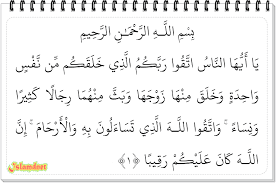 بِسْمِ اللَّهِ الرَّحْمَٰنِ الرَّحِيمِ
يَا أَيُّهَا النَّاسُ اتَّقُوا رَبَّكُمُ الَّذِي خَلَقَكُم مِّن نَّفْسٍ
وَاحِدَةٍ وَخَلَقَ مِنْهَا زَوْجَهَا وَبَثَّ مِنْهُمَا رِجَالًا كَثِيرًا
وَنِسَاءً ۚ وَاتَّقُوا اللَّهَ الَّذِي تَسَاءَلُونَ بِهِ وَالْأَرْحَامَ ۚ إِنَّ
اللَّهَ كَانَ عَلَيْكُمْ رَقِيبًا ﴿١﴾
Islamdoot